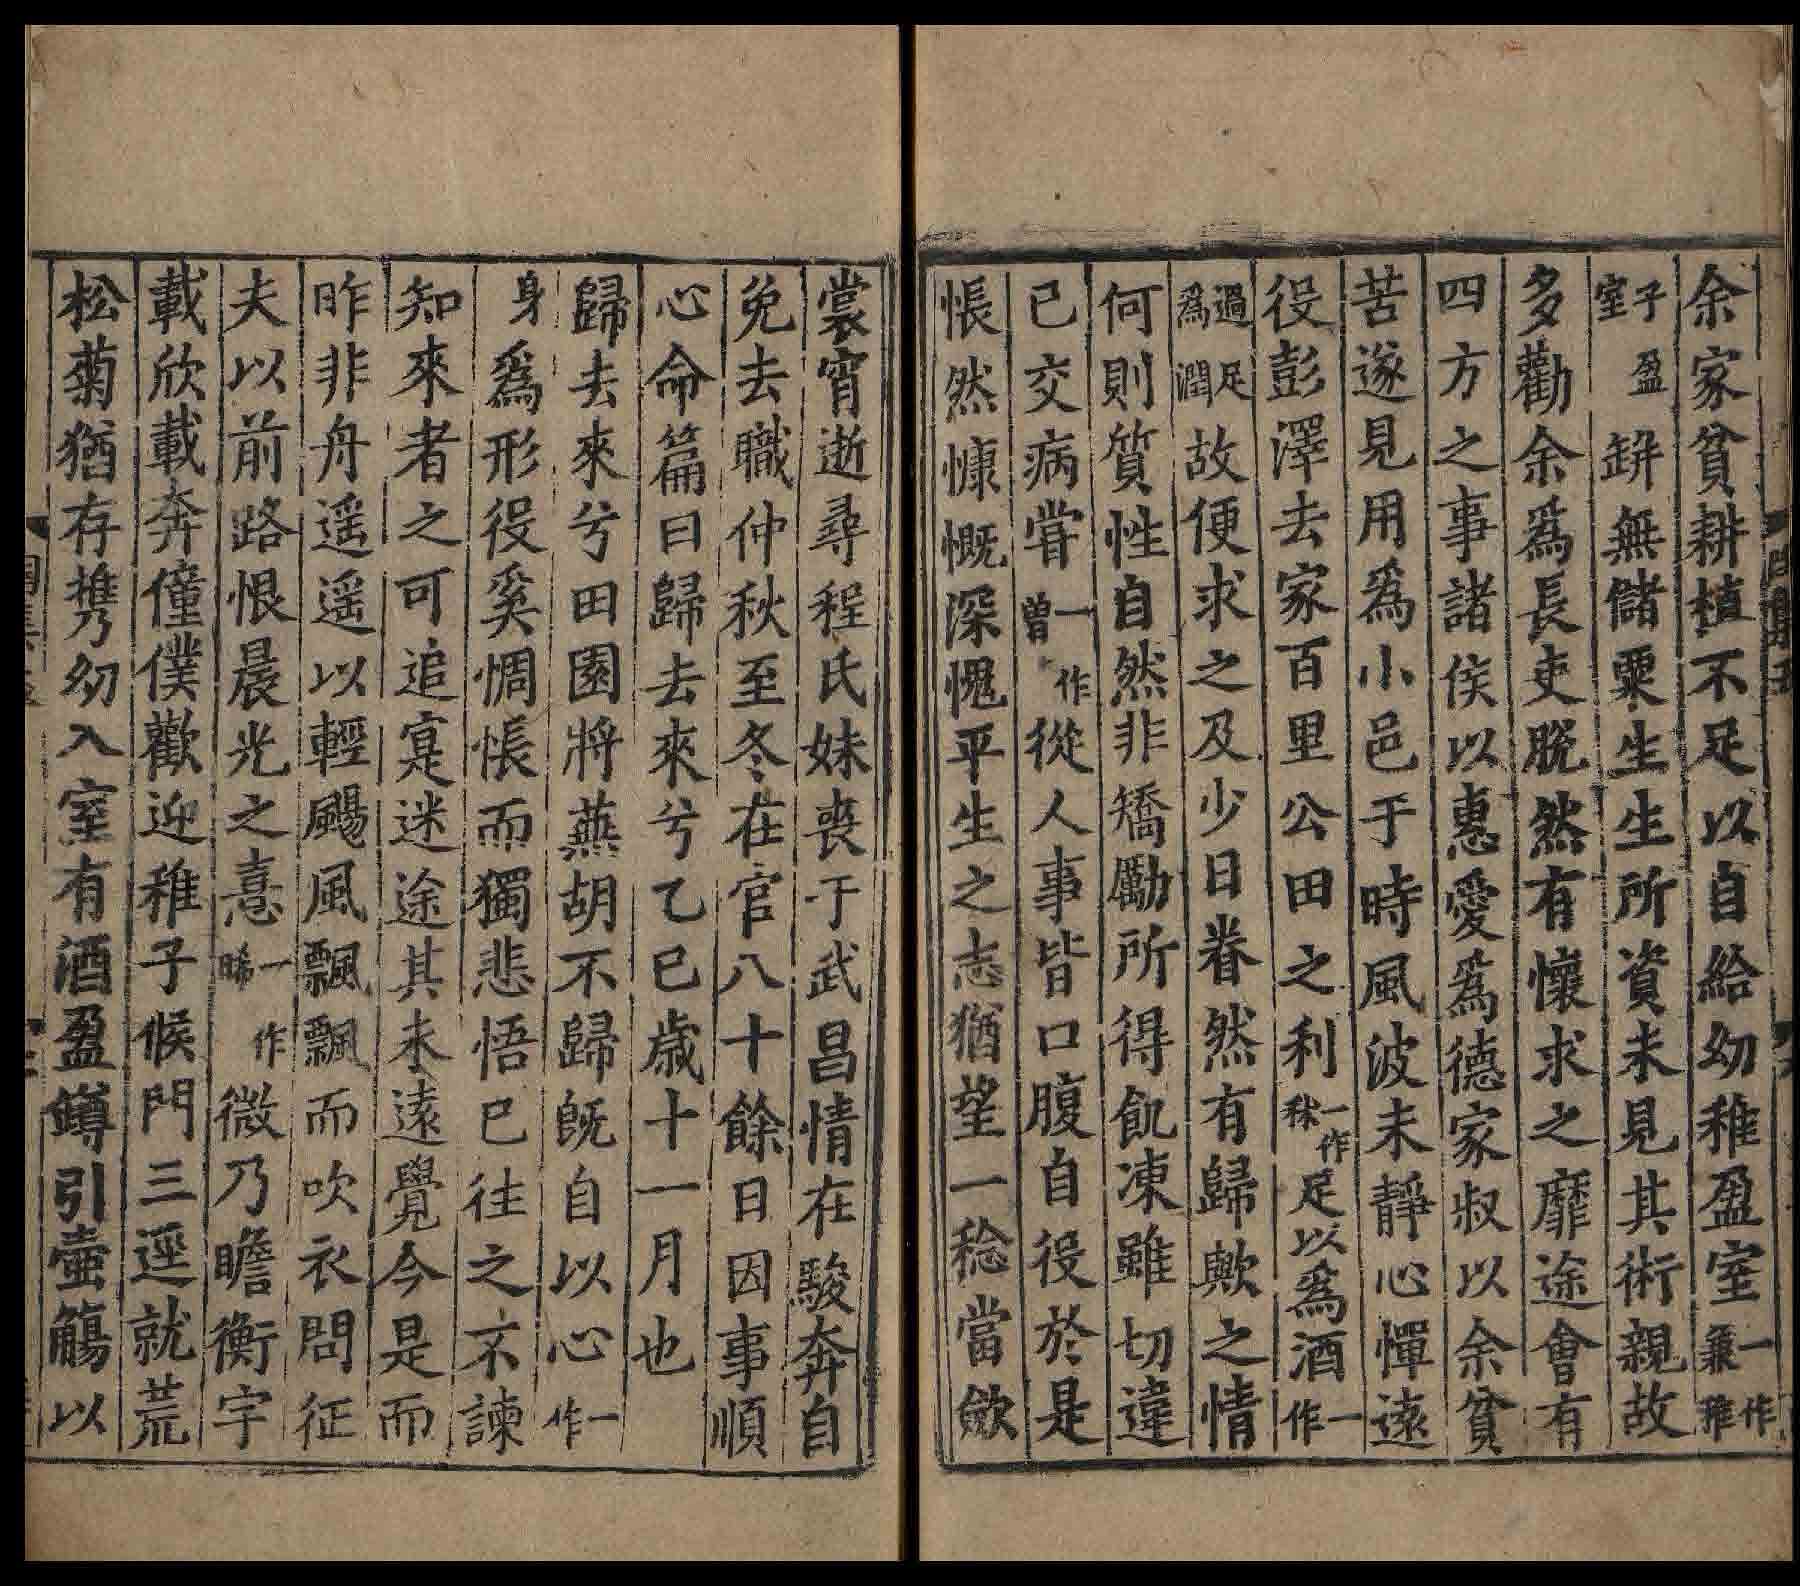 余家貧耕植不足以自給幼稚盈室一作兼稚
子盈室缾無儲粟生生所資未見其術親故
多勸余爲長吏脫然有懷求之靡途會有
四方之事諸侯以惠愛爲德家叔以余貧
苦遂見用爲小邑于時風波未靜心憚遠
役彭澤去家百里公田之利一作秫足以爲酒一作
過足爲潤故便求之及少日眷然有歸歟之情
何則質性自然非矯勵所得飢凍雖切違
已交病嘗一作曾從人事皆口腹自役於是
悵然慷慨深愧平生之志猶望一稔當斂
裳宵逝尋程氏妹喪于武昌情在駿奔自
免去職仲秋至冬在官八十餘日因事順
心命篇曰歸去來兮乙巳歲十一月也
歸去來兮田園將蕪胡不歸既自以心一作
身爲形役奚惆悵而獨悲悟已往之不諫
知來者之可追寔迷途其未遠覺今是而
昨非舟遥遥以輕颺風飄飄而吹衣問征
夫以前路恨晨光之憙一作晞微乃瞻衡宇
載欣載奔僮僕歡迎稚子候門三逕就荒
松菊猶存携幼入室有酒盈罇引壺觴以